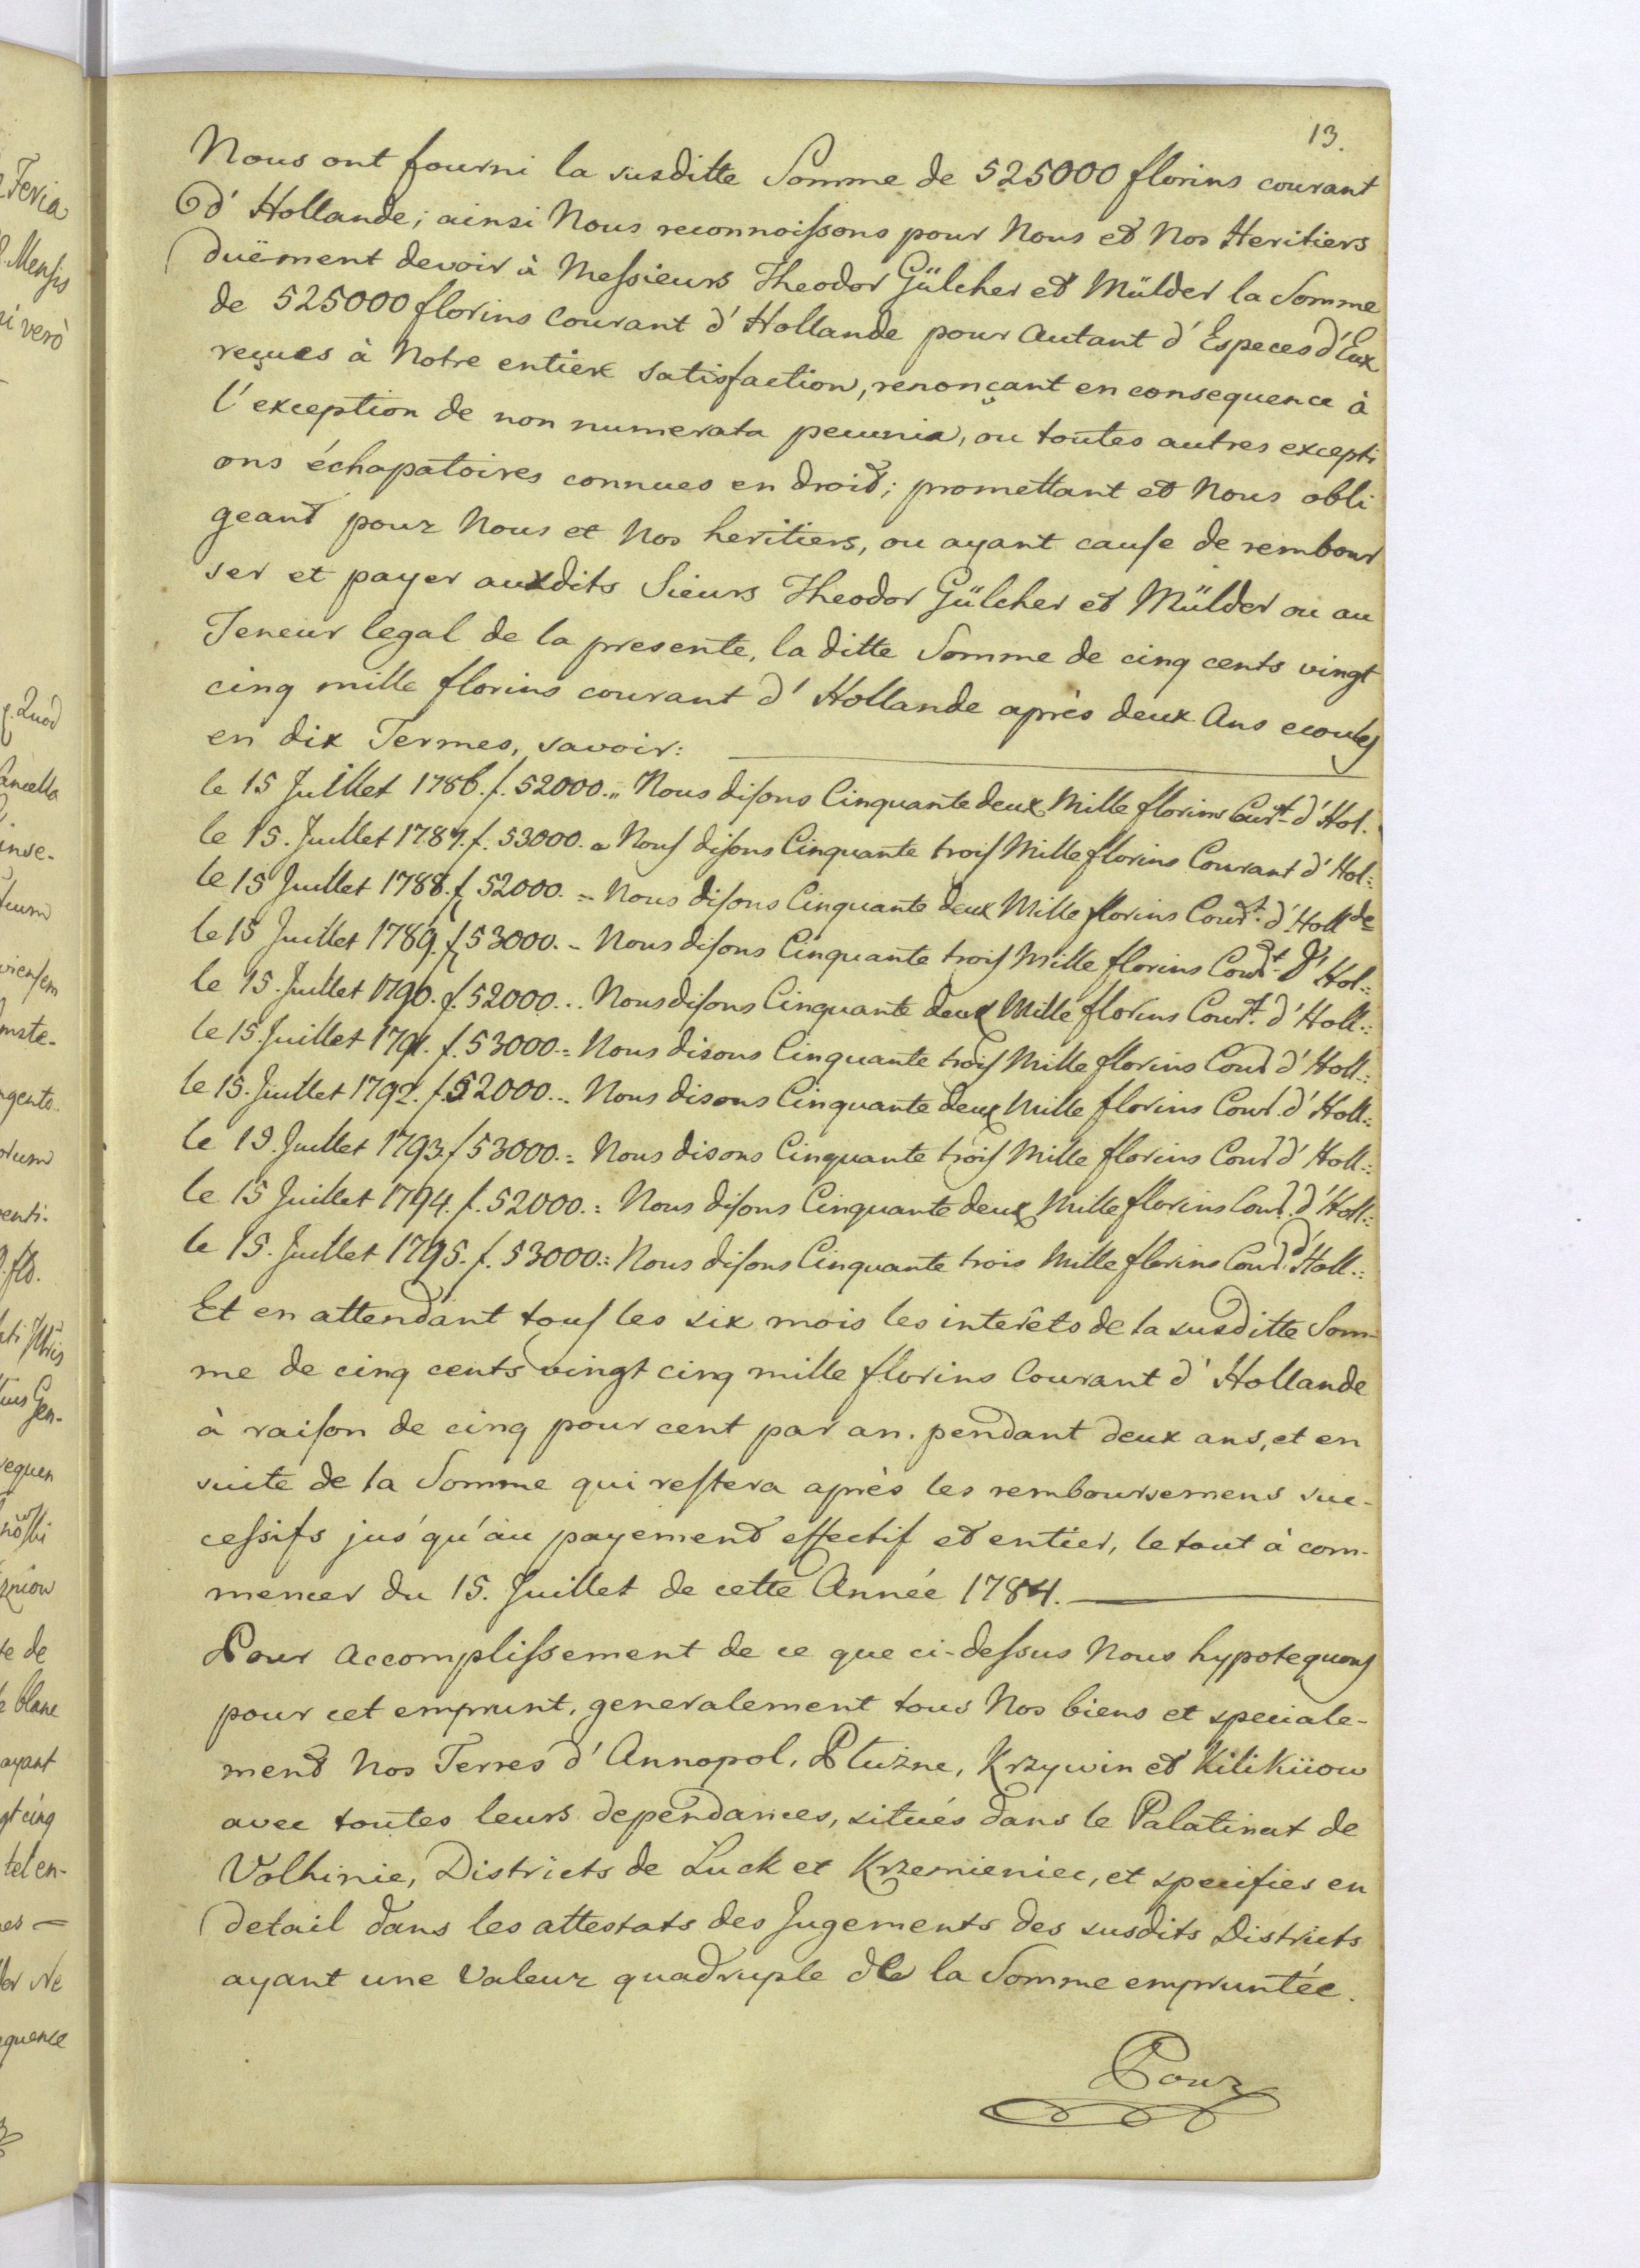 13.
Nous ont fourni la susditte Somme de 525000 florins courant
d' Hollande; ainsi Nous reconnoissons pour Nous et Nos Heritiers
duëment devoir à Messieurs Theodor Gülcher et Mülder la Somme
de 525000 florins Courant d' Hollande pour Autant d' Especes d'Eux
reçues à Notre entiere satisfaction, renonçant en consequence à
l'exception de non numerata pecunia, ou toutes autres excepti
ons échapatoires connues en droit; promettant et Nous obli
geant pour Nous et Nos heritiers, ou ayant cause de rembour
ser et payer auxdits Sieurs Theodor Gülcher et Mülder ou au
Teneur legal de la presente, la ditte Somme de cinq cents vingt
cinq mille florins courant d' Hollande après deux Ans ecoules
en dix Termes, savoir:
le 15 Juillet 1786. f. 52000.,, Nous disons Cinquante deux Mille florins Cour.t d' Hol.
le 15. Juillet 1787. f. 53000. = Nous disons Cinquante trois Mille florins Courant d' Hol:
le 15 Juillet 1788. f. 52000. = Nous disons Cinquante deux Mille florins Cour.t d' Hollde
le 15 Juillet 1789. f. 53000. - Nous disons Cinquante trois Mille florins Cour.t D' Hol:
le 15. Juillet 1790. f. 52000... Nous disons Cinquante deux Mille florins Cour.t d' Holl:
le 15. Juillet 1791. f. 53000.= Nous disons Cinquante trois Mille florins Cour.t d' Holl:
le 15. Juillet 1792. f. 52000... Nous disons Cinquante deux Mille florins Cour.t d' Holl:
le 15. Juillet 1793. f 53000.= Nous disons Cinquante trois Mille florins Cour.t d' Holl:
le 15 Juillet 1794. f. 52000.= Nous disons Cinquante deux Mille florins Cour.t d' Holl:
le 15. Juillet 1795. f. 53000.= Nous disons Cinquante trois Mille florins Cour.t d' Holl:
Et en attendant tous les six mois les interêts de la susditte Som-
me de cinq cents vingt cinq mille florins Courant d' Hollande
à raison de cinq pour cent par an. pendant deux ans, et en
suite de la Somme qui restera après les remboursemens suc-
cessifs jus'qu'au payement effectif et entier, le tout à com-
mencer du 15. Juillet de cette Année 1784.
Pour Accomplissement de ce que ci-dessus Nous hypotequons
pour cet emprunt, generalement tous Nos biens et speciale-
ment Nos Terres d' Annopol, Pluzne, Krzywin et Kilikiiow
avec toutes leurs dependances, situés dans le Palatinat de
Volhinie, Districts de Luck et Krzemieniec, et specifies en
detail dans les attestats des Jugements des susdits Districts
ayant une Valeur quadruple de la Somme empruntée.
Pour